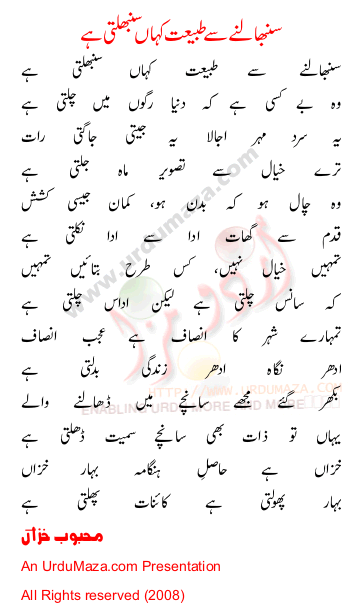 سنبھالنے سے طبیعت کہاں سنبھلتی ہے
سنبھالنے سے طبیعت کہاں سنبھلتی ہے
وہ بے کسی ہے کہ دنیا رگوں میں چلتی ہے
یہ سرد مہر اجالا یہ جیتی جاگتی رات
ترے خیال سے تصویر ماہ جلتی ہے
وہ چال ہو کہ بدن ہو، کمان جیسی کشش
قدم سے گھات ادا سے ادا نکلتی ہے
تمہیں خیال نہیں، کس طرح بتائیں تمہیں
کہ سانس چلتی ہے لیکن اداس چلتی ہے
تمہارے شہر کا انصاف ہے عجب انصاف
ادھر نگاہ ادھر زندگی بدلتی ہے
بکھر گئے مجھے سانچے میں ڈھالنے والے
یہاں تو ذات بھی سانچے سمیت ڈھلتی ہے
خزاں ہے حاصلِ ہنگامہ بہار خزاں
بہار پھولتی ہے کائنات پھلتی ہے
محبوب خزاں
An UrduMaza.com Presentation
All Rights reserved (2008)
www.urdumaza.com
اردو مزا
HTTP://WWW.URDUMAZA.COM
ENABLING URDU MORE AND MORE